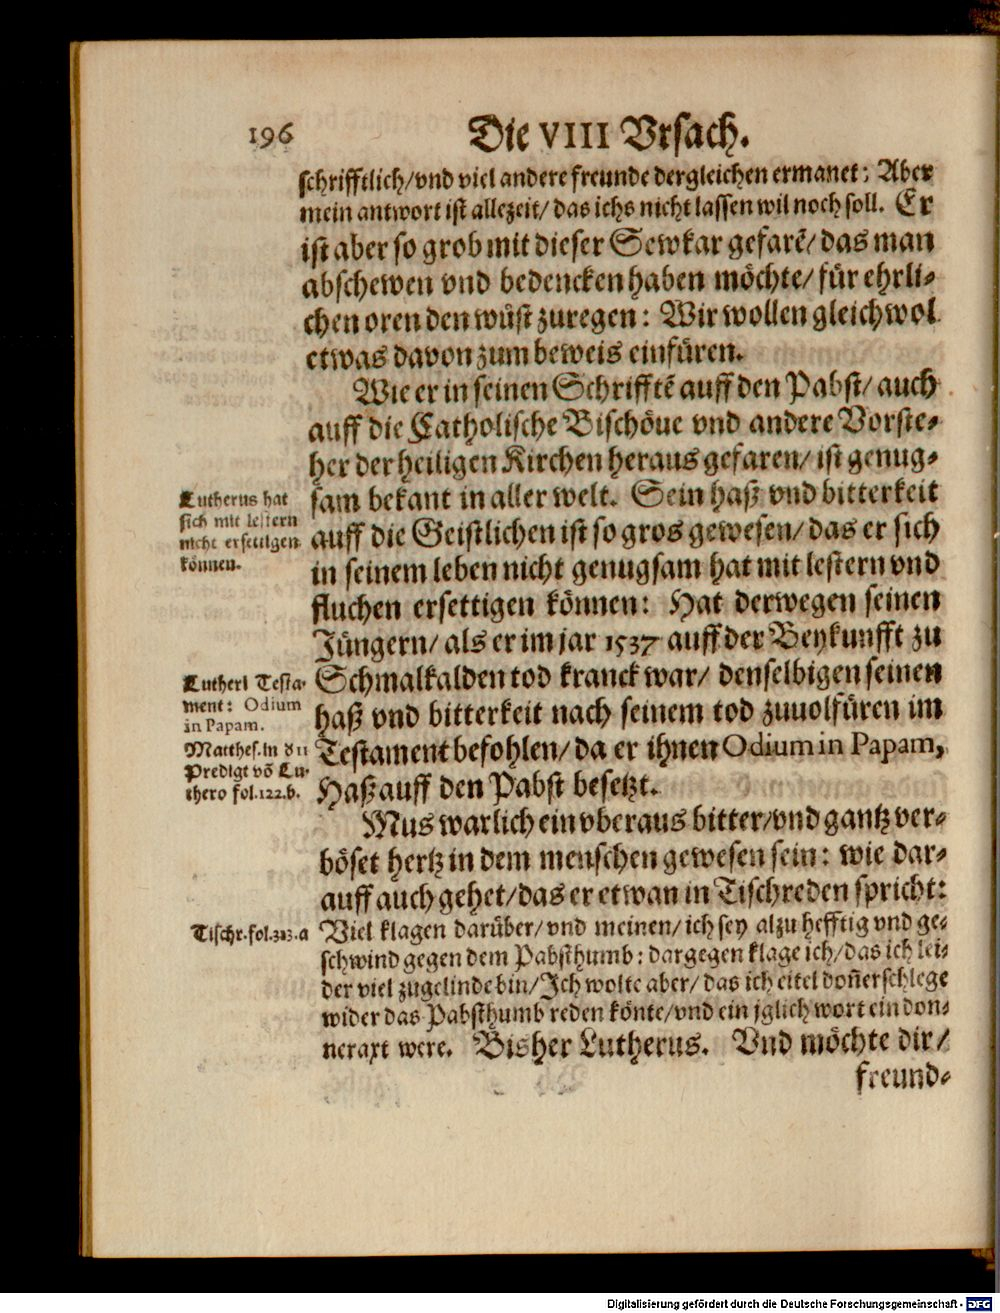 196
Die VIII Vrsach.
schrifftlich/vnd viel andere freunde dergleichen ermanet: Aber
mein antwort ist allezeit/ das ichs nicht lassen wil noch soll. Er
ist aber so grob mit dieser Sewkar gefarē/ das man
abschewen vnd bedencken haben möchte/ für ehrli-
chen oren den wüst zuregen: Wir wollen gleichwol
etwas davon zum beweis einfüren.
Wie er in seinen Schrifftē auff den Pabst/ auch
auff die Catholische Bischöue vnd andere Vorste-
her der heiligen Kirchen heraus gefaren/ ist genug-
sam bekant in aller welt. Sein haß vnd bitterkeit
auff die Geistlichen ist so gros gewesen/ das er sich
in seinem leben nicht genugsam hat mit lestern vnd
fluchen ersettigen können: Hat derwegen seinen
Jüngern/ als er im jar 1537 auff der Beykunfft zu
Schmalkalden tod kranck war/ denselbigen seinen
haß vnd bitterkeit nach seinem tod zuuolfüren im
Testament befohlen/ da er ihnen Odium in Papam,
Haß auff den Pabst besetzt.
Lutherus hat
sich mit lestern
nicht ersettigen
können.
Lutheri Testa-
ment: Odium
in Papam.
Matthes. in der
Predigt vō Lu-
thero fol. 122. b.
Mus warlich ein vberaus bitter/vnd gantz ver-
böset hertz in dem menschen gewesen sein: wie dar-
auff auch gehet/das er etwan in Tischreden spricht:
Tischr. fol. 313. a
Viel klagen darüber/ vnd meinen/ ich sey alzu hefftig vnd ge-
schwind gegen dem Pabsthumb: dargegen klage ich/das ich lei-
der viel zugelinde bin/Ich wolte aber/ das ich eitel don̄erschlege
wider das Pabsthumb reden könte/vnd ein jglich wort ein don-
neraxt were. Bisher Lutherus. Vnd möchte dir/
freund-
Digitalisierung gefördert durch die Deutsche Forschungsgemeinschaft - DFG